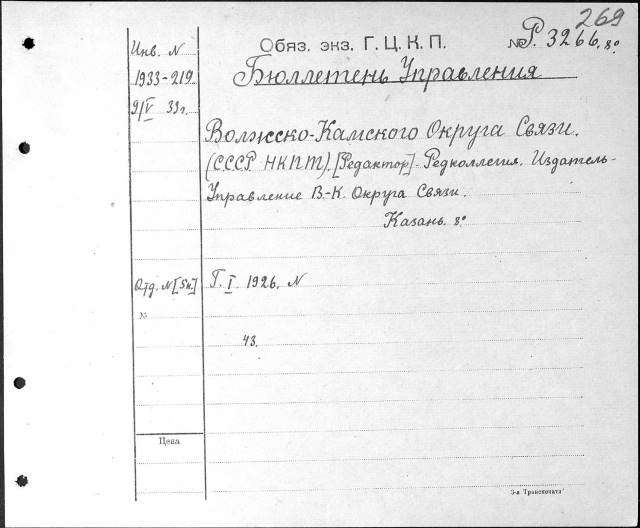 269
Инв. N Обяз. экз. Г. Ц. К. П. № Р. 3266. 8º
1933-219 Бюллетень Управления
9/V 33г.
Волжско-Камского Округа Связи.
(СССР НКПТ). [Редактор]- Редколлегия. Издатель-
Управление В.-К. Округа Связи.
Казань. 8º
Отд. N Г. I 1926, N
№
43.
Цена
3-я Транспечати